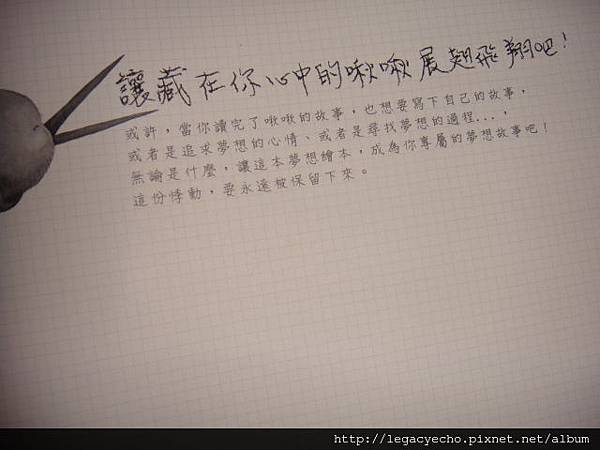 讓藏在你心中的啾啾展翅飛翔吧!
或許，當你讀完了啾啾的故事，也想要寫下自己的故事，
或者是追求夢想的心情、或者是尋找夢想的過程...，
無論是什麼，讓這本夢想繪本，成為你專屬的夢想故事吧！
這份悸動，要永遠被保留下來。
http://legacyecho.pixnet.net/album